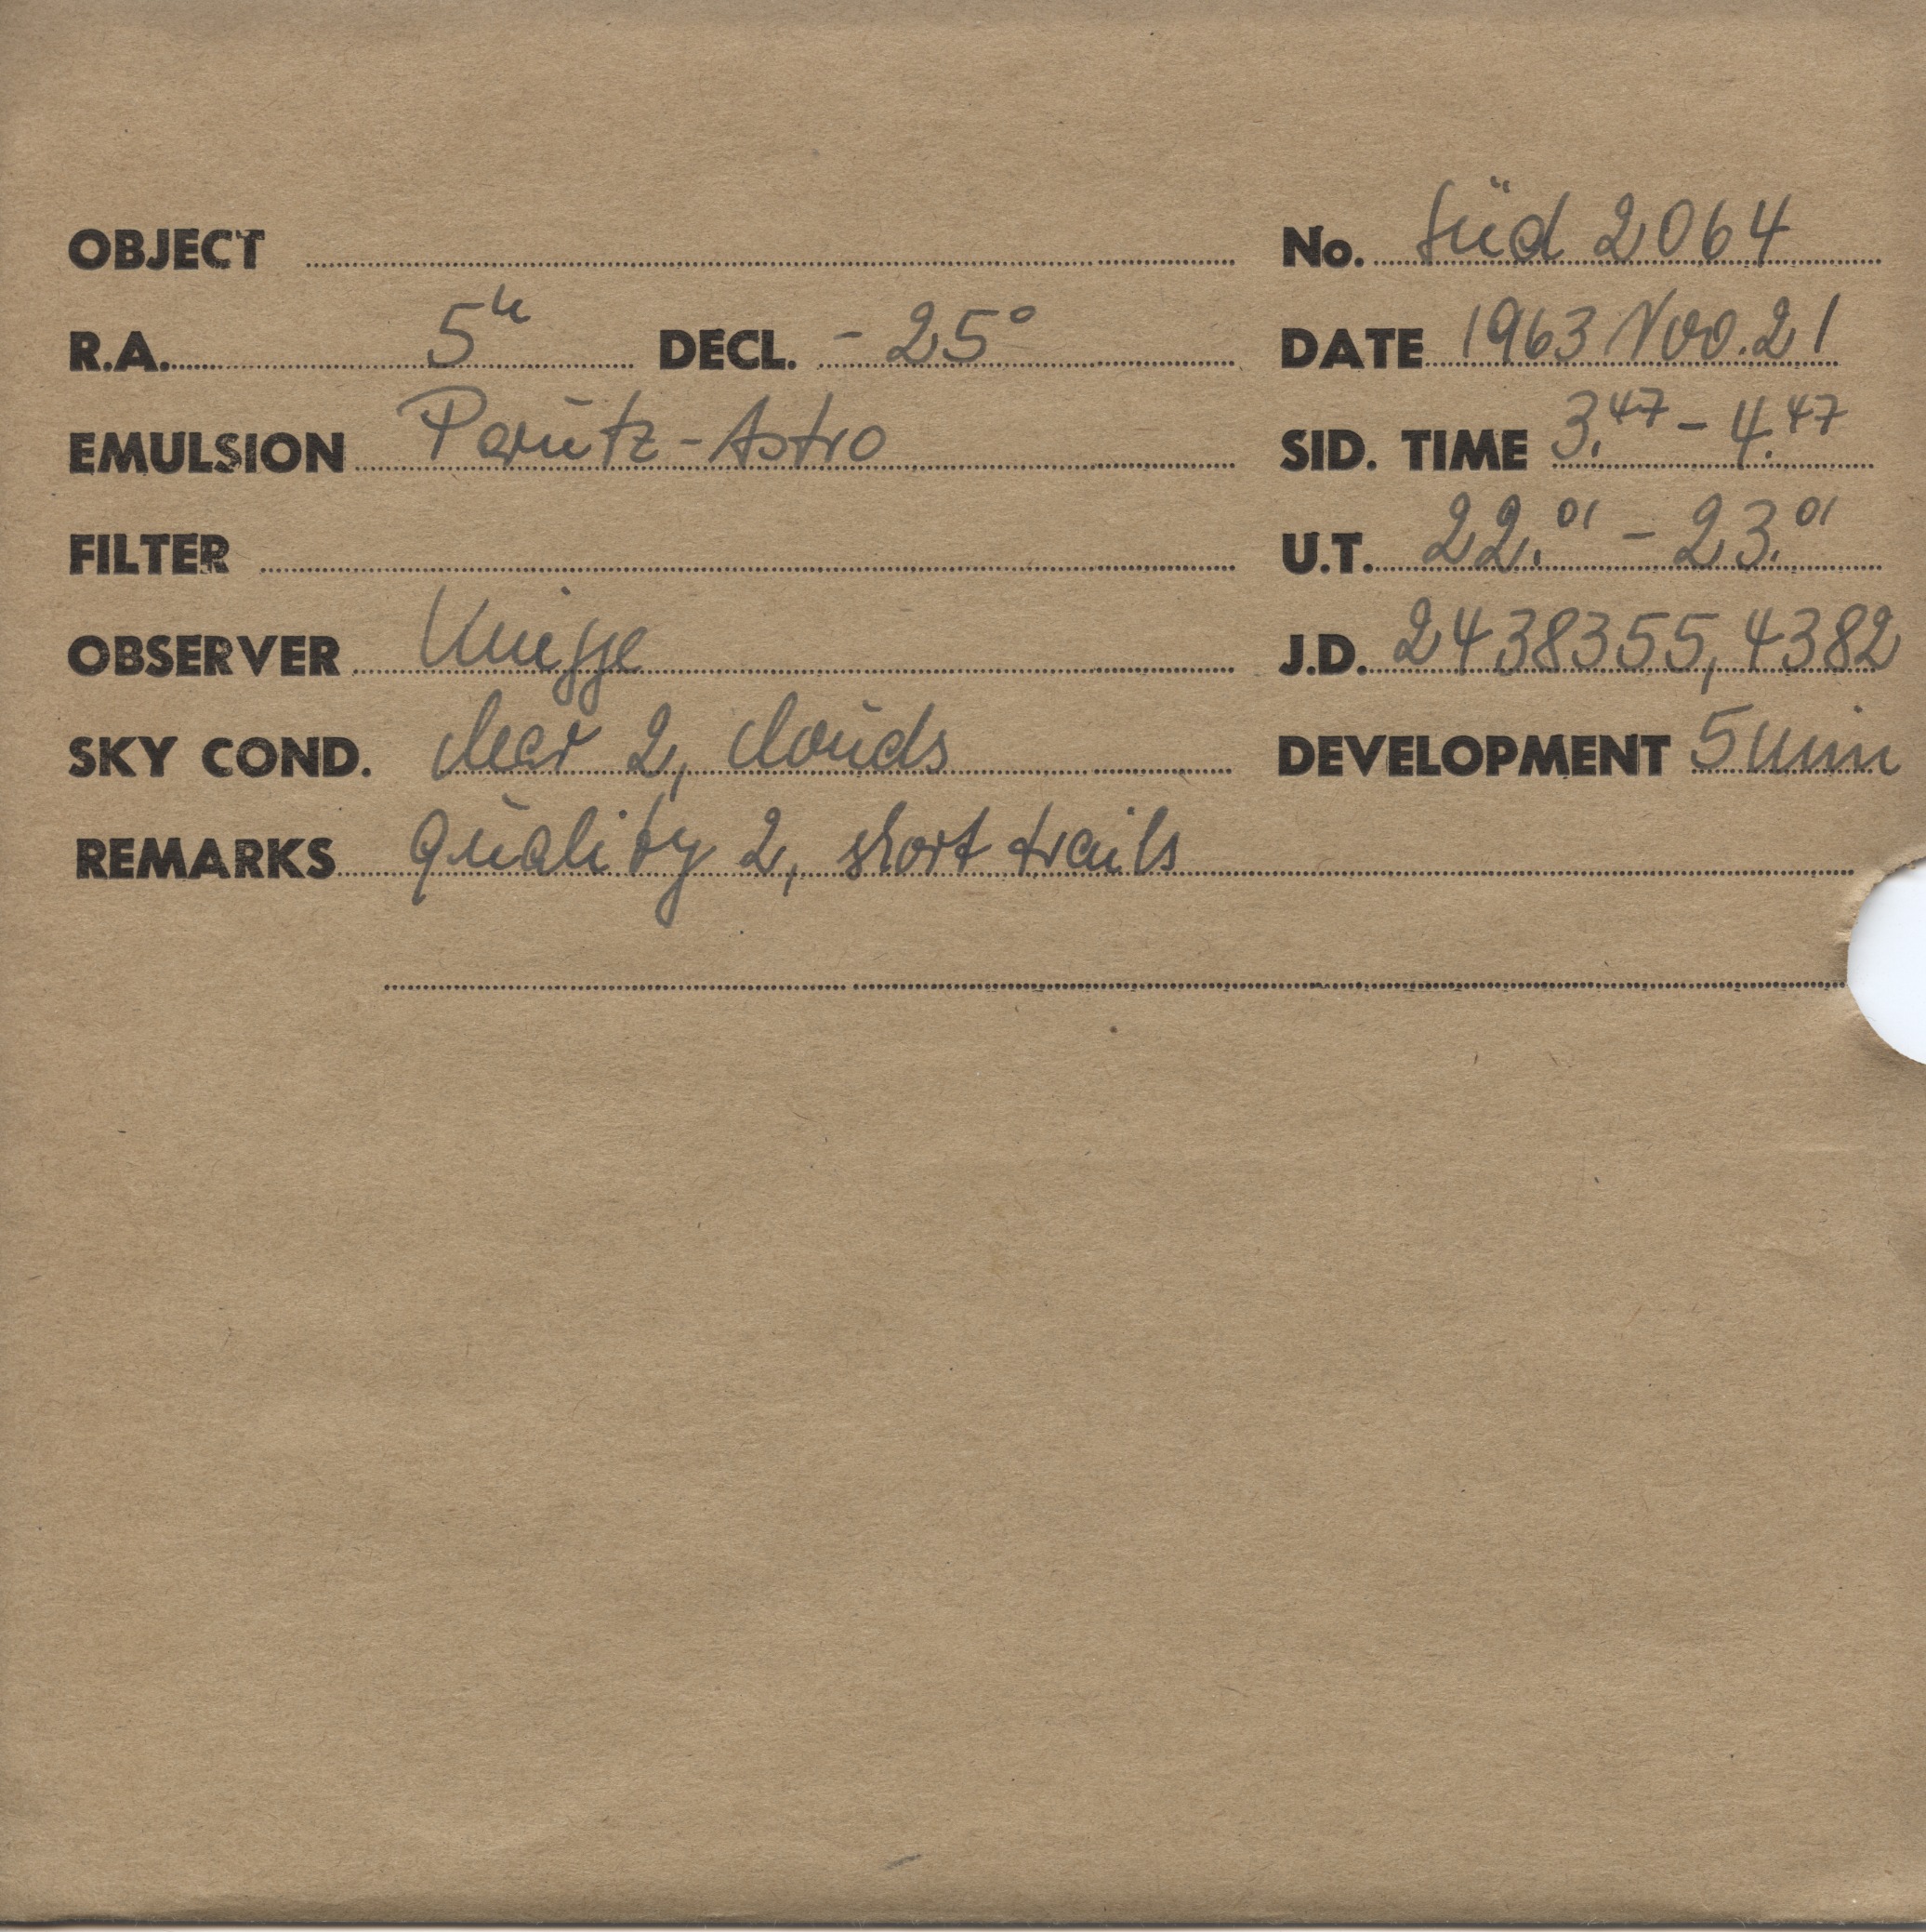 OBJECT No. Süd 2064
R.A. 5h DECL. -25° DATE 1963 Nov. 21
EMULSION Perutz-Astro SID. TIME 3.47 - 4.47
FILTER U.T. 22.01 - 23.01
OBSERVER Knigge J.D. 2438355,4382
SKY COND. clear 2, clouds DEVELOPMENT 5 min
REMARKS quality 2, short trails